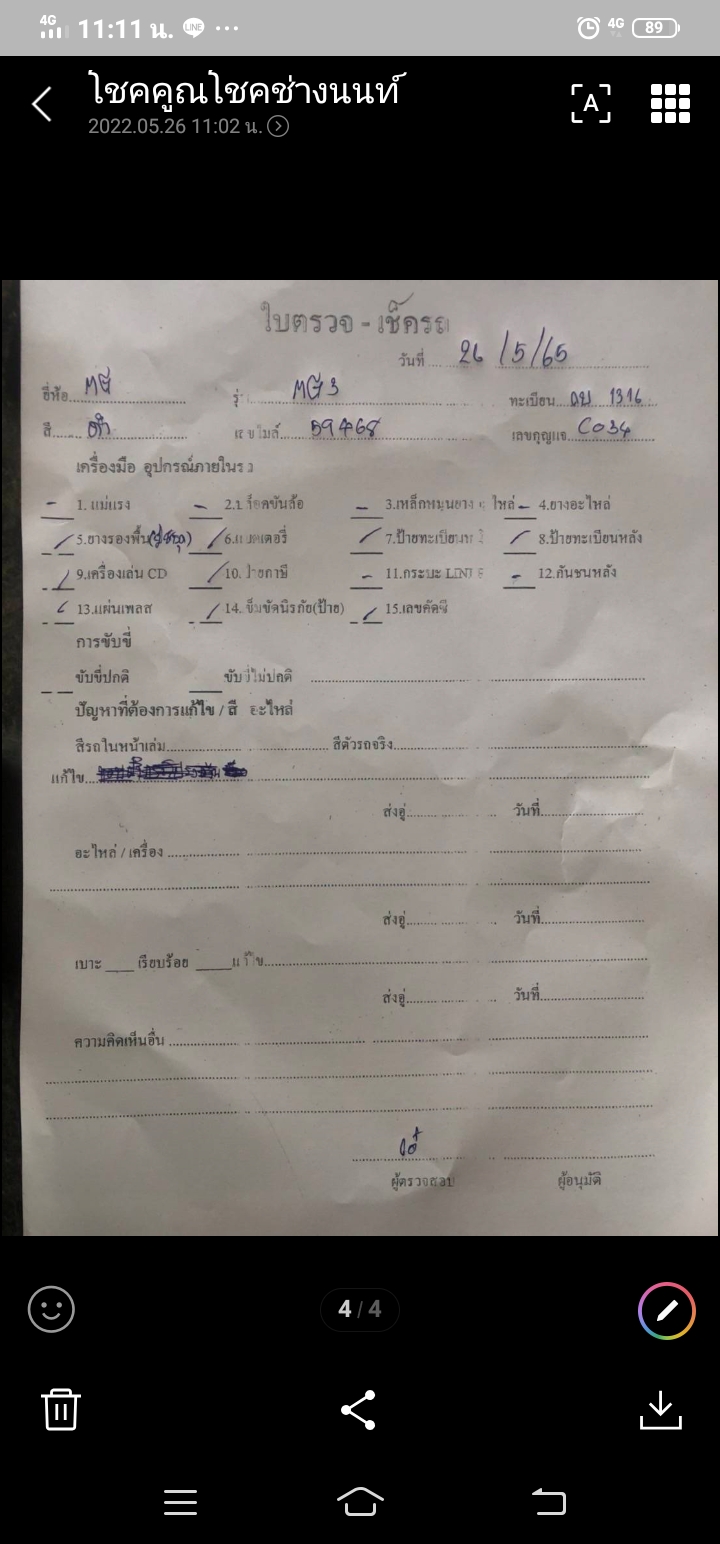 4G 11:11 น. LINE ... 4G 89
โชคคูณโชคช่างนนท์
2022.05.26 11:02 น.
A
ใบตรวจ - เช็ครถ
วันที่ 26 /5/65
ยี่ห้อ MG รุ่น MG 3 ทะเบียน 1316
สี ดำ เลขไมล์ 59468 เลขกุญแจ C034
เครื่องมือ อุปกรณ์ภายในรถ
- 1. แม่แรง - 2. ร็อคขันล้อ - 3.เหล็กหมุนยางอะไหล่ - 4.ยางอะไหล่
/ 5.ยางรองพื้น / 6.แบตเตอรี่ / 7.ป้ายทะเบียนหน้า / 8.ป้ายทะเบียนหลัง
/ 9.เครื่องเล่น CD / 10. ป้ายภาษี - 11.กระบะ LINER - 12.กันชนหลัง
/ 13.แผ่นเพลส / 14. เข็มขัดนิรภัย(ป้าย) / 15.เลขคัดซี
การขับขี่
ขับขี่ปกติ ขับขี่ไม่ปกติ
ปัญหาที่ต้องการแก้ไข / สี อะไหล่
สีรถในหน้าเล่ม สีตัวรถจริง
แก้ไข
ส่งอู่ วันที่
อะไหล่ / เครื่อง
ส่งอู่ วันที่
เบาะ ____ เรียบร้อย ____ แก้ไข
ส่งอู่ วันที่
ความคิดเห็นอื่น
ผู้ตรวจสอบ ผู้อนุมัติ
4 / 4